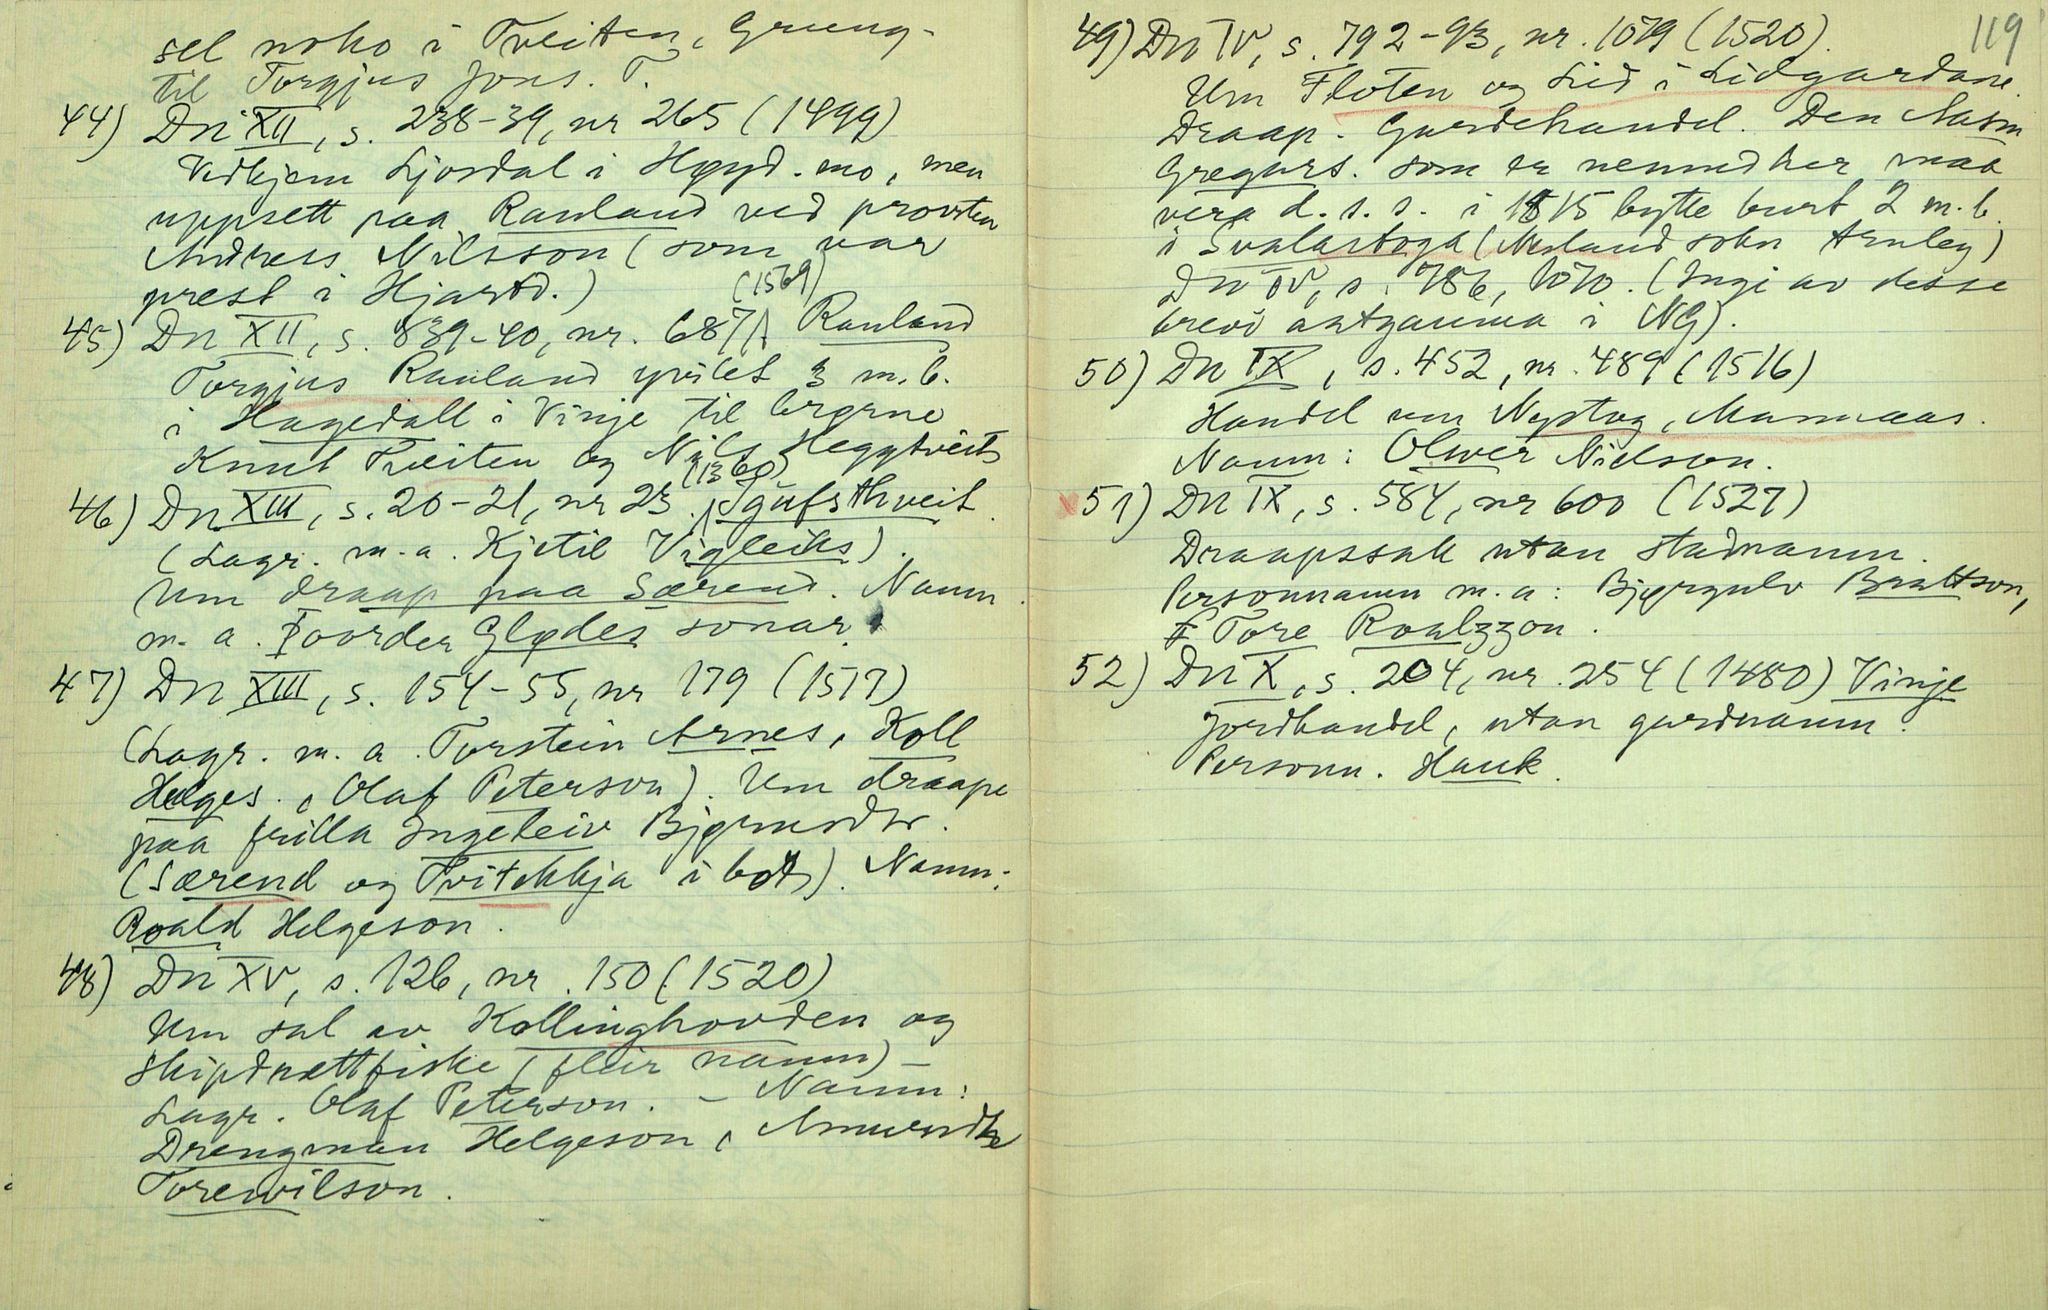 sel noko i Tveiten, Grung-
til Torgjus Jons. T.
44) Dn XII, s. 238-39, nr 265 (1499)
Vedkjem Ljosdal i Høyd.mo, men
uppsett paa Rauland ved provsten
Andress Nilsson (som var
prest i Hjartd.)
(1569)
45) Dn XII, s. 839-40, nr. 687 Rauland
Torgjus Rauland 3 m.b.
i Hagedall i Vinje til brørne
Knut Tveiten og Nils Heggtveit
(1360)
46) Dn XIII, s. 20-21, nr 23. Igufsthveit.
(Lagr. m.a. Kjetil Vigleiks).
Um draap paa Særend. Namn
m.a. Þoorder Glødes sonar.
47) Dn XIII, s. 154-55, nr 179 (1517)
(Lagr. m.a. Torstein Arnes, Koll
Helges., Olaf Peterson). Um draape
paa frilla Ingeleiv Bjørnsdtr.
(Særend og Tvitekkja i bot). Namn:
Roald Helgeson.
48) Dn XV, s. 126, nr. 150 (1520)
Um sal av Kollinghovden og
Skipdrættfiske (fleir namn) -
Lagr. Olaf Peterson. - Namn:
Drengman Helgeson, Amundh
Torewilson.
119
49) Dn IV, s. 792-93, nr. 1079 (1520).
Um Floten og Lid i Lidgardane.
Draap. Gardehandel. Den Aasm
Gregars. som er nemnd her maa
vera d.s.s. i 1515 bytte burt 2 m.b.
i Svalastoga (Nesland sokn Arnley)
Dn IV, s. 786, 1070. (Ingi av desse
brevi antgauma i NG).
50) Dn IX, s. 452, nr. 489 (1516)
Handel um Nystog, Mannaas.
Namn: Olwer Nielson.
51) Dn IX, s. 584, nr 600 (1527)
Draapssak utan stadnamn.
Personnamn m.a: Bjørgulv Brattson,
Tore Roalzzon.
52) Dn X, s. 204, nr. 254 (1480) Vinje
Jordhandel, utan gardnamn.
Personn. Hauk.